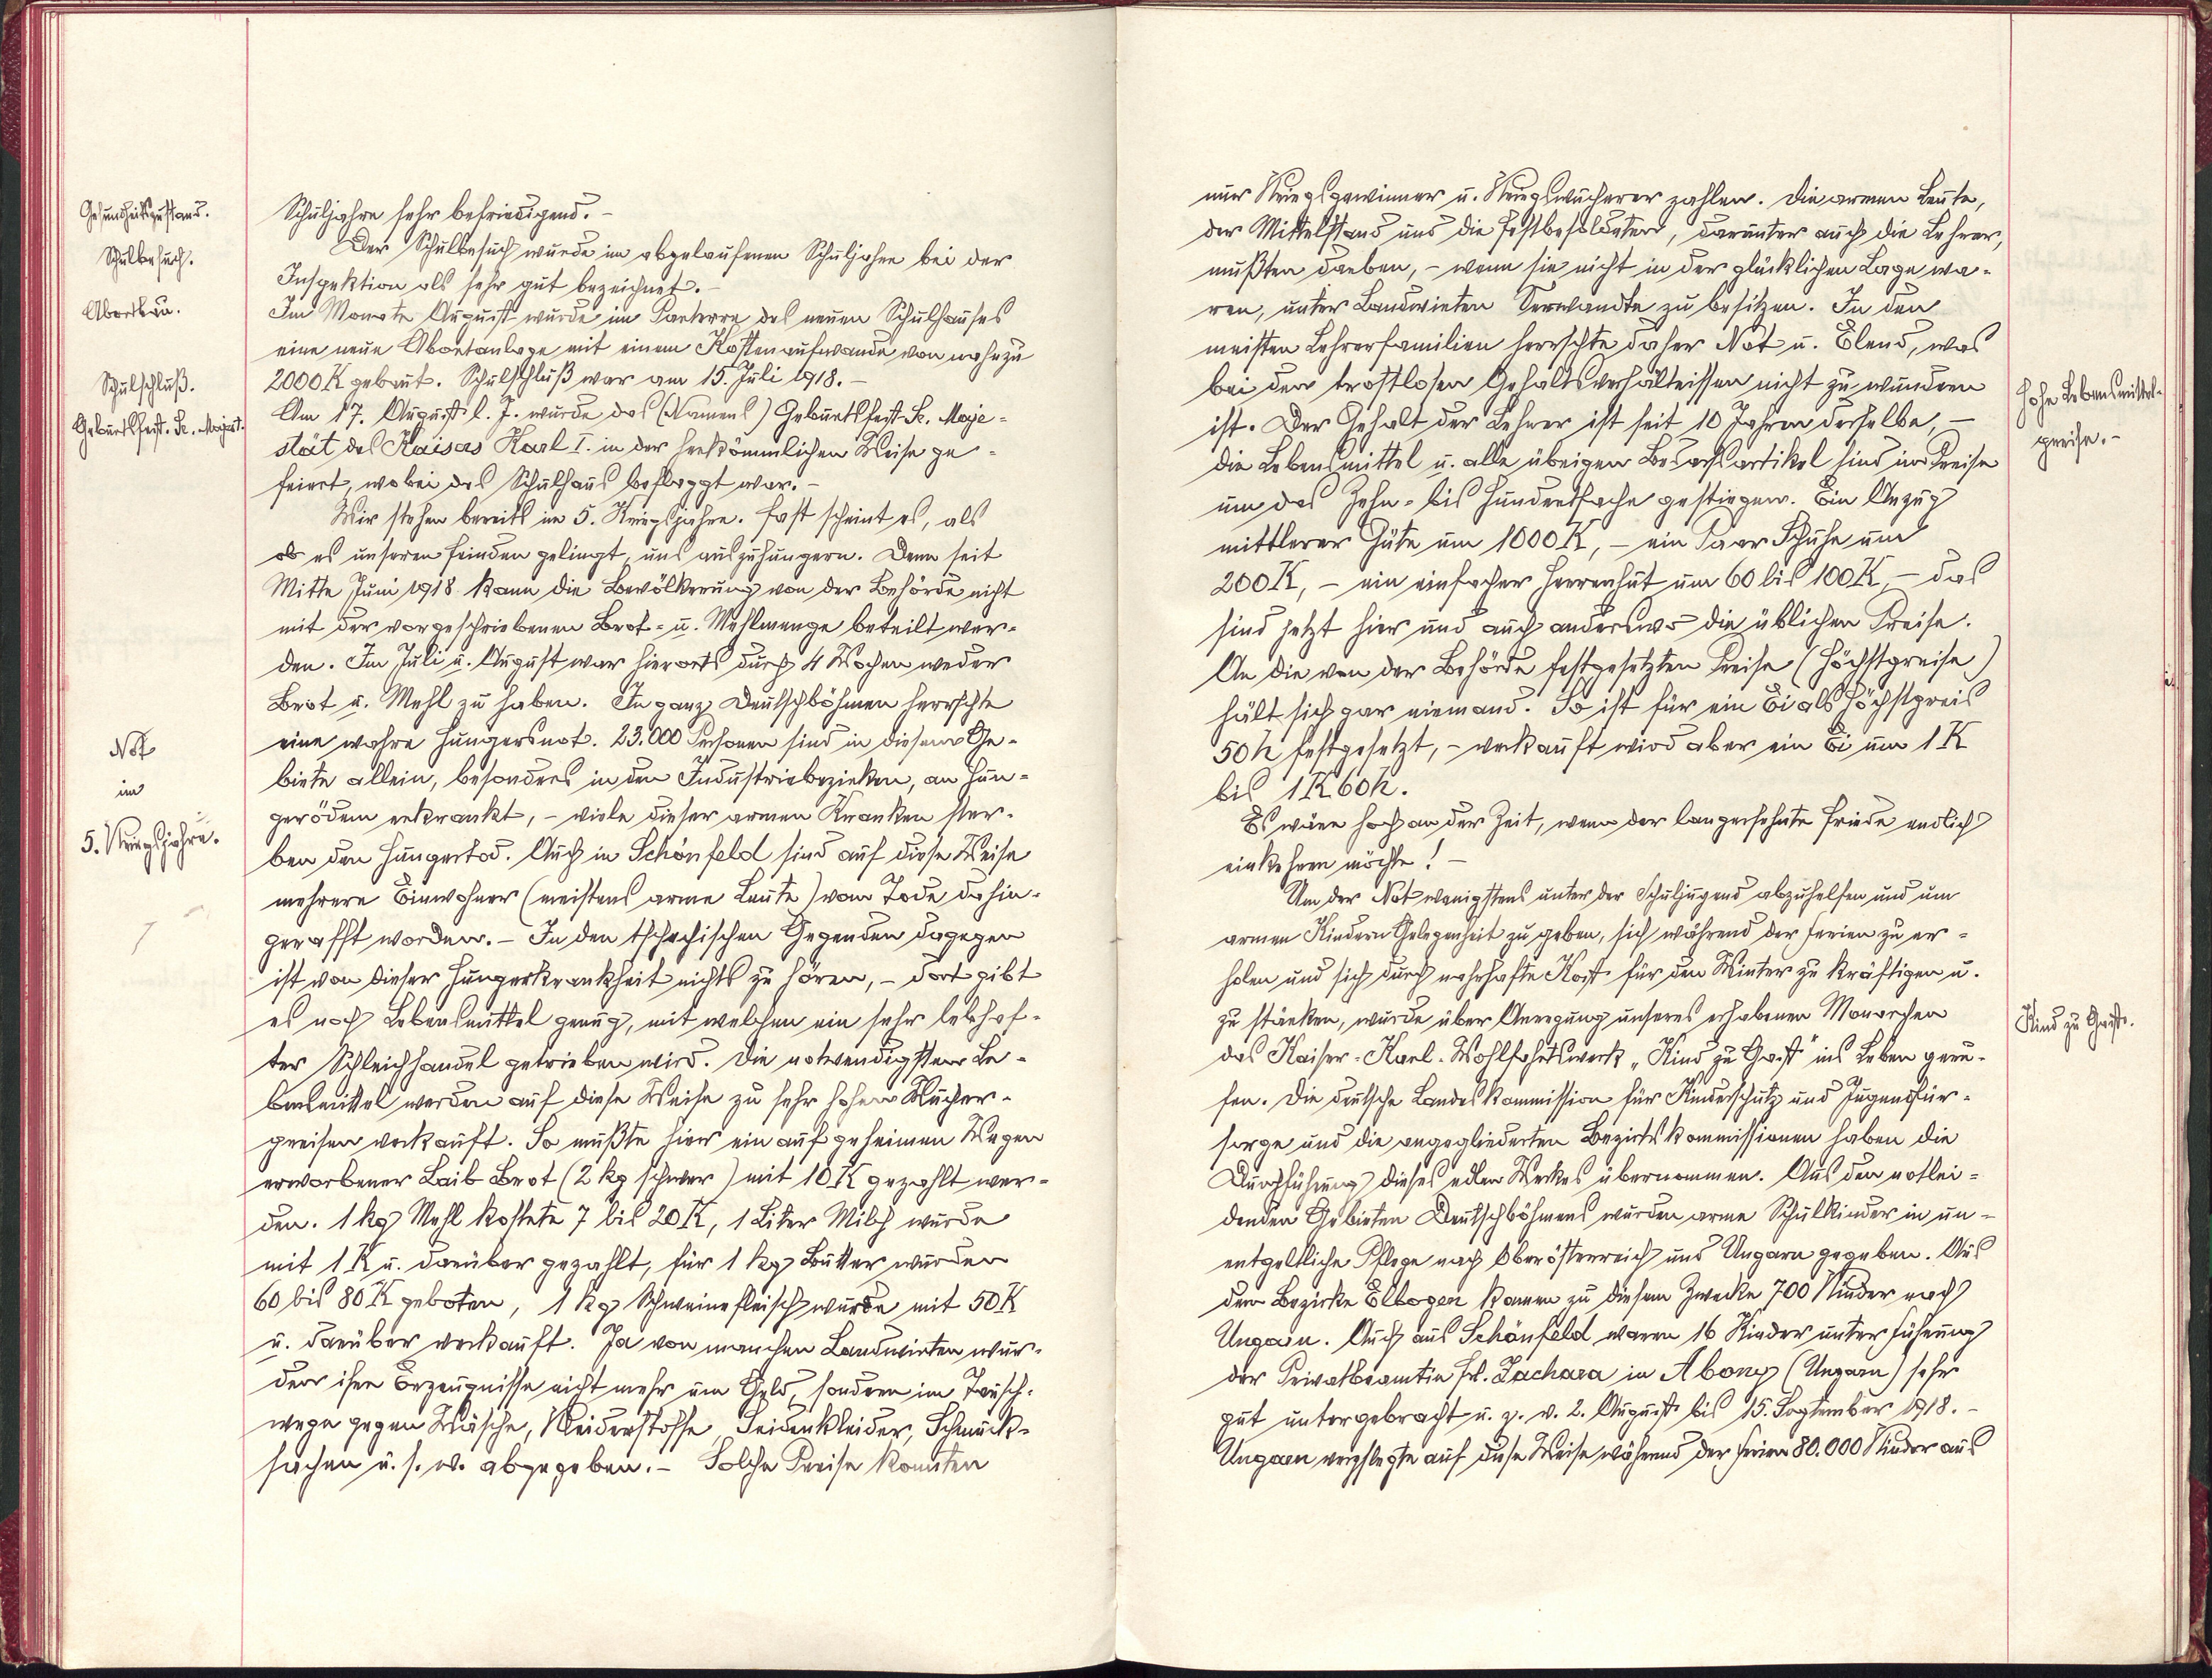 Gesundheitszustand.
Schulbesuch.
Abortbau.
Schulschluß.
Geburtsfest Sr. Majest.
Not
im
5. Kriegsjahre.
Schuljahre sehr befriedigend. –
Der Schulbesuch wurde im abgelaufenen Schuljahre bei der
Inspektion als sehr gut bezeichnet. –
Im Monate August wurde im Parterre des neuen Schulhauses
eine neue Abortanlage mit einem Kostenaufwande von nahezu
2000 K gebaut. Schulschluß war am 15. Juli 1918. –
Am 17. August l. J. wurde das (Namens) Geburtsfest Sr. Maje-
stät des Kaisers Karl I. in der herkömmlichen Weise ge-
feiert, wobei das Schulhaus beflaggt war. –
Wir stehen bereits im 5. Kriegsjahre. Fast scheint es, als
ob es unseren Feinden gelingt, uns auszuhungern. Denn seit
Mitte Juni 1918 kann die Bevölkerung von der Behörde nicht
mit der vorgeschriebenen Brot- u. Mehlmenge beteilt wer-
den. Im Juli u. August war hierorts durch 4 Wochen weder
Brot u. Mehl zu haben. In ganz Deutschböhmen herrschte
eine wahre Hungersnot. 23.000 Personen sind in diesem Ge-
biete allein, besonders in den Industriebezirken, an Hun-
gerödem erkrankt, – viele dieser armen Kranken star-
ben den Hungertod. Auch in Schönfeld sind auf diese Weise
mehrere Einwohner (meistens arme Leute) vom Tode dahin-
gerafft worden. – In den tschechischen Gegenden dagegen
ist von dieser Hungerkrankheit nichts zu hören, – dort gibt
es noch Lebensmittel genug, mit welchen ein sehr lebhaf-
ter Schleichhandel getrieben wird. Die notwendigsten Le-
bensmittel werden auf diese Weise zu sehr hohen Wucher-
preisen verkauft. So mußte hier ein auf geheimen Wegen
erworbener Laib Brot (2 kg schwer) mit 10 K gezahlt wer-
den. 1 kg Mehl kostete 7 bis 20 K, 1 Liter Milch wurde
mit 1 K u. darüber gezahlt, für 1 kg Butter wurden
60 bis 80 K geboten, 1 kg Schweinefleisch wurde mit 50 K
u. darüber verkauft. Ja von manchen Landwirten wur-
den ihre Erzeugnisse nicht mehr um Geld, sondern im Tausch-
wege gegen Wäsche, Kleiderstoffe, Seidenkleider, Schmuck-
sachen u. s. w. abgegeben. – Solche Preise konnten
nur Kriegsgewinner u. Kriegswucherer zahlen. Die armen Leute,
der Mittelstand und die Festbesoldeten, darunter auch die Lehrer,
mußten darben, – wenn sie nicht in der glücklichen Lage wa-
ren, unter Landwirten Verwandte zu besitzen. In den
meisten Lehrerfamilien herrschte daher Not u. Elend, was
bei den trostlosen Gehaltsverhältnissen nicht zu wundern
ist. Der Gehalt der Lehrer ist seit 10 Jahren derselbe, –
die Lebensmittel u. alle übrigen Bedarfsartikel sind im Preise
um das Zehn- bis Hundertfache gestiegen. Ein Anzug
mittlerer Güte um 1000 K, – ein Paar Schuhe um
200 K, – ein einfacher Herrenhut um 60 bis 100 K – das
sind jetzt hier und auch anderswo die üblichen Preise.
An die von der Behörde festgesetzten Preise (Höchstpreise)
hält sich gar niemand. So ist für ein Ei als Höchstpreis
50 h festgesetzt, – verkauft wird aber ein Ei um 1 K
bis 1 K 60 h.
Es wäre hoch an der Zeit, wenn der langersehnte Friede endlich
einkehren möchte! –
Um der Not wenigstens unter der Schuljugend abzuhelfen und um
armen Kindern Gelegenheit zu geben, sich während der Ferien zu er-
holen und sich durch nahrhafte Kost für den Winter zu kräftigen u.
zu stärken, wurde über Anregung unseres erhabenen Monarchen
das Kaiser-Karl-Wohlfahrtswerk „Kind zu Gast“ ins Leben geru-
fen. Die deutsche Landeskommission für Kinderschutz und Jugendfür-
sorge und die angegliederten Bezirkskommissionen haben die
Durchführung dieses edlen Werkes übernommen. Aus den notlei-
denden Gebieten Deutschböhmens wurden arme Schulkinder in un-
entgeltliche Pflege nach Oberösterreich und Ungarn gegeben. Aus
dem Bezirke Elbogen kamen zu diesem Zwecke 700 Kinder nach
Ungarn. Auch aus Schönfeld waren 16 Kinder unter Führung
der Privatbeamtin Frl. Zachara in Abony (Ungarn) sehr
gut untergebracht u. z. v. 2. August bis 15. September 1918. –
Ungarn verpflegte auf diese Weise während der Ferien 80.000 Kinder aus
Hohe Lebensmittel-
preise. –
Kind zu Gaste.